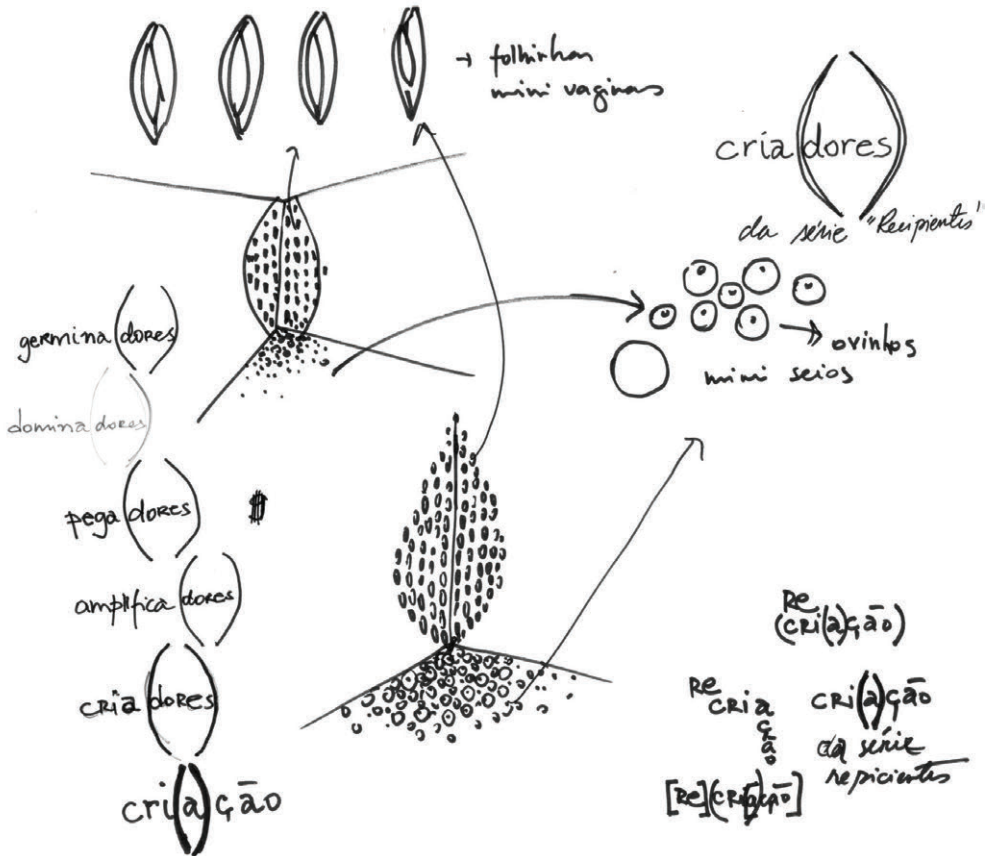 → folhinhas
mini vaginas
cria(dores)
da série "Recipientes"
→ ovinhos
mini seios
germina(dores)
domina(dores)
pega(dores)
amplifica(dores)
cria(dores)
cri(a)ção
Re
(CRi(a)ção)
Re
CRia
ç
ã
o
CRi(a)ção
da série
repicientes
[Re](CRi[a]ção)